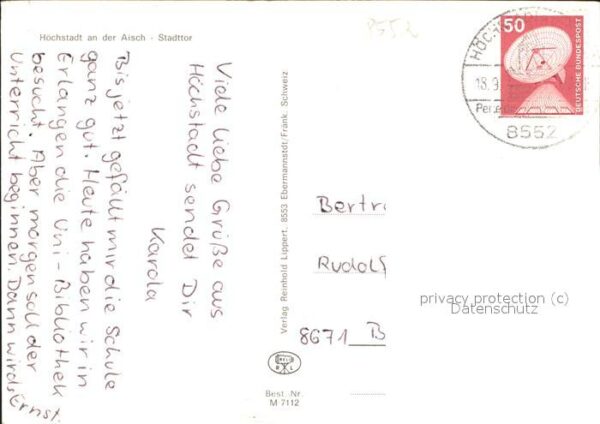 Höchstadt an der Aisch - Stadttor
8552
Viele liebe Grüße aus
Höchstadt sendet Dir
Karola
Bis jetzt gefällt mir die Schule
ganz gut. Heute haben wir in
Erlangen die Uni-Bibliothek
besucht. Aber morgen soll der
Unterricht beginnen. Dann wirds Ernst.
Verlag Reinhold Lippert. 8553 Ebermannstdt/Fränk. Schweiz
R L
Best. Nr.
M 7112
50
DEUTSCHE BUNDESPOST
HÖCHSTAD
18.9.
8552
Bertr
Rudolf
8671 B
privacy protection (c)
Datenschutz